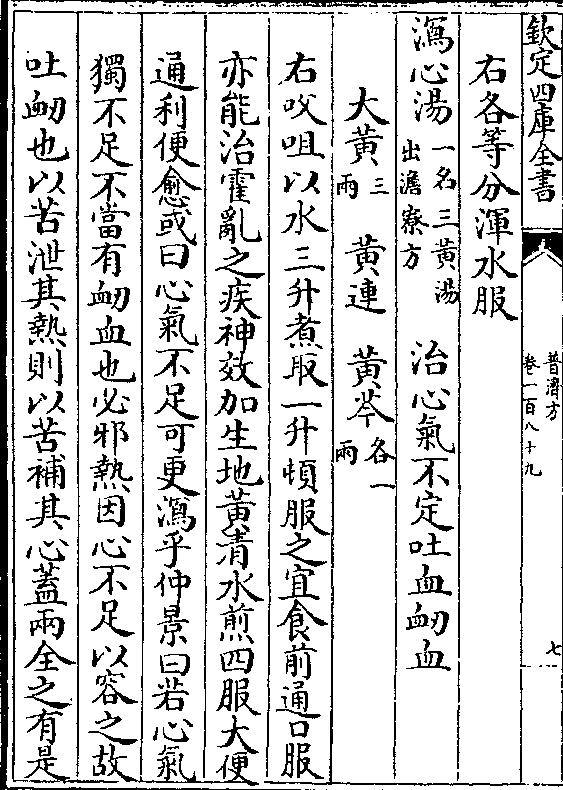 欽定四庫全書
普濟方
卷一百八十九
七
右各等分渾水服
瀉心湯一名三黃湯出澹寮方　治心氣不定吐血衂血
大黃三兩　黃連　黃芩各一兩
右㕮咀以水三升煮取一升頓服之宜食前通口服
亦能治霍亂之疾神效加生地黃清水煎四服大便
通利便愈或曰心氣不足可更瀉乎仲景曰若心氣
獨不足不當有衂血也必邪熱因心不足以容之故
吐衂也以苦泄其熱則以苦補其心蓋兩全之有是